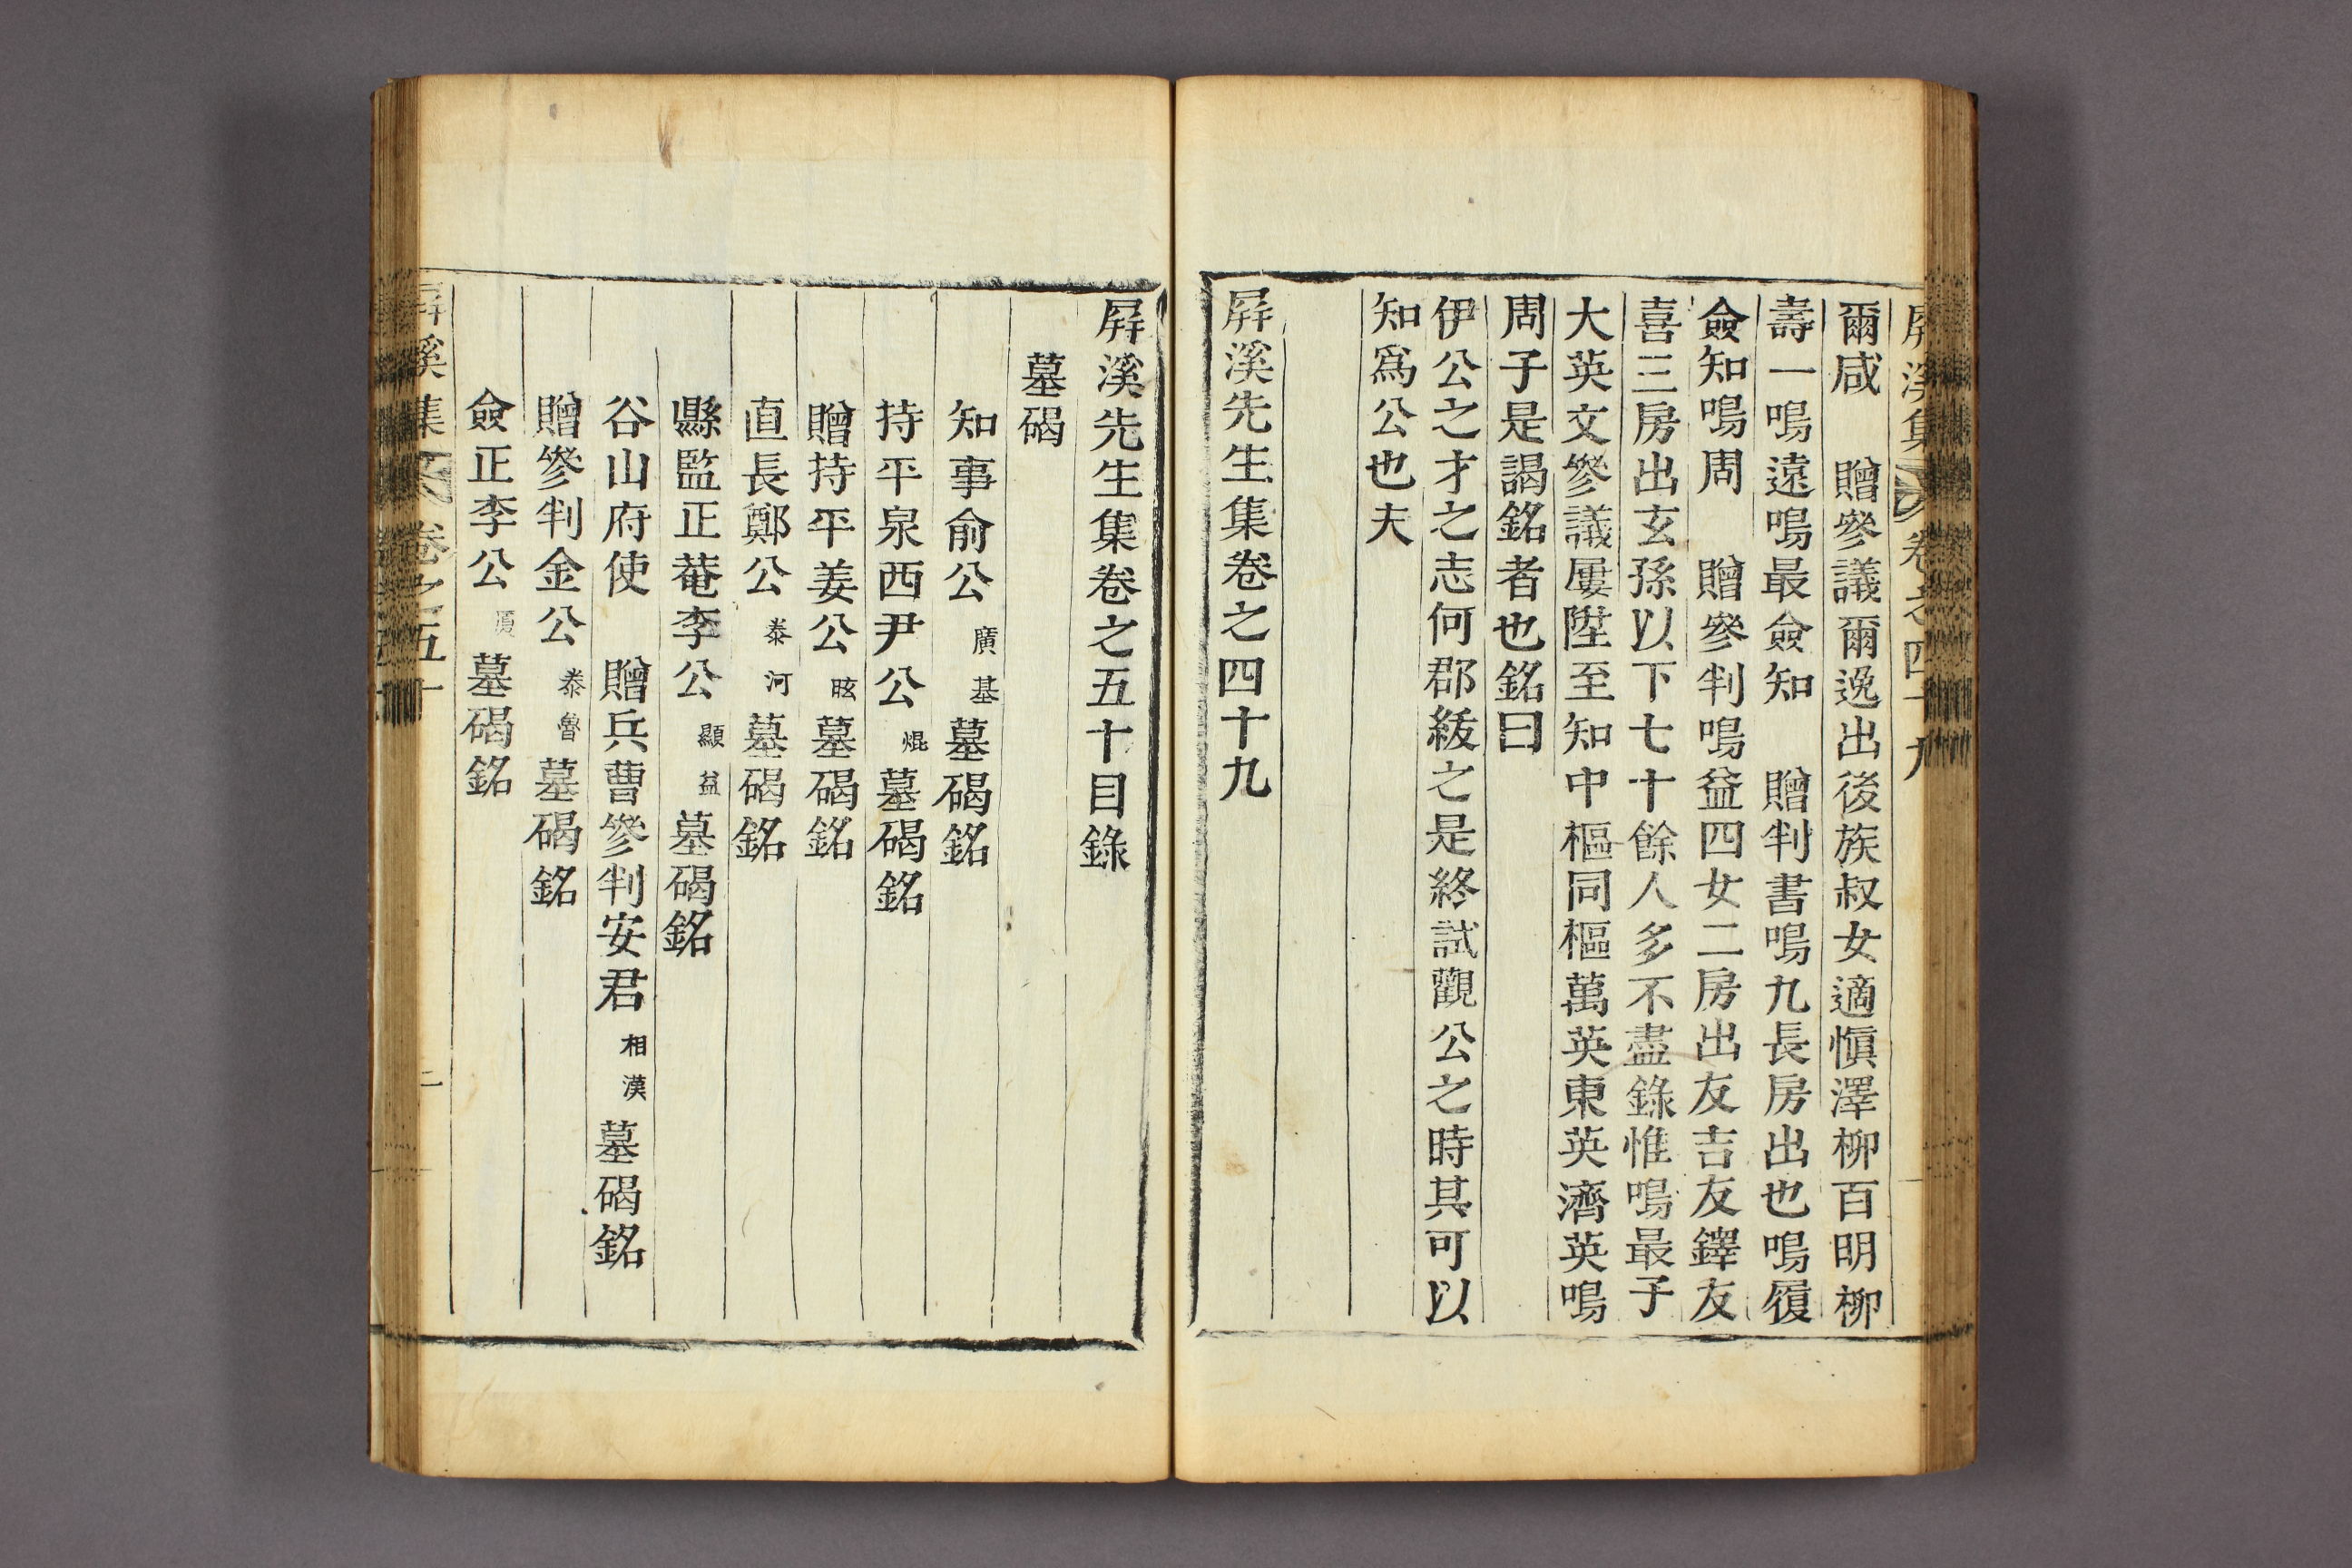 屛溪集 卷之四十九
爾咸 贈參議爾逸出後族叔女適愼澤柳百明柳
壽一鳴遠鳴最僉知 贈判書鳴九長房出也鳴履
僉知鳴周 贈參判鳴益四女二房出友吉友鐸友
喜三房出玄孫以下七十餘人多不盡錄惟鳴最子
大英文參議屢陞至知中樞同樞萬英東英濟英鳴
周子是謁銘者也銘曰
伊公之才之志何郡紱之是終試觀公之時其可以
知爲公也夫
屛溪先生集卷之四十九
屛溪先生集卷之五十目錄
墓碣
知事俞公 廣基 墓碣銘
持平泉西尹公 焜 墓碣銘
贈持平姜公 昡 墓碣銘
直長鄭公 泰河 墓碣銘
縣監正菴李公 顯益 墓碣銘
谷山府使 贈兵曹參判安君 相漢 墓碣銘
贈參判金公 泰魯 墓碣銘
僉正李公 墓碣銘
屛溪集 卷之五十 二